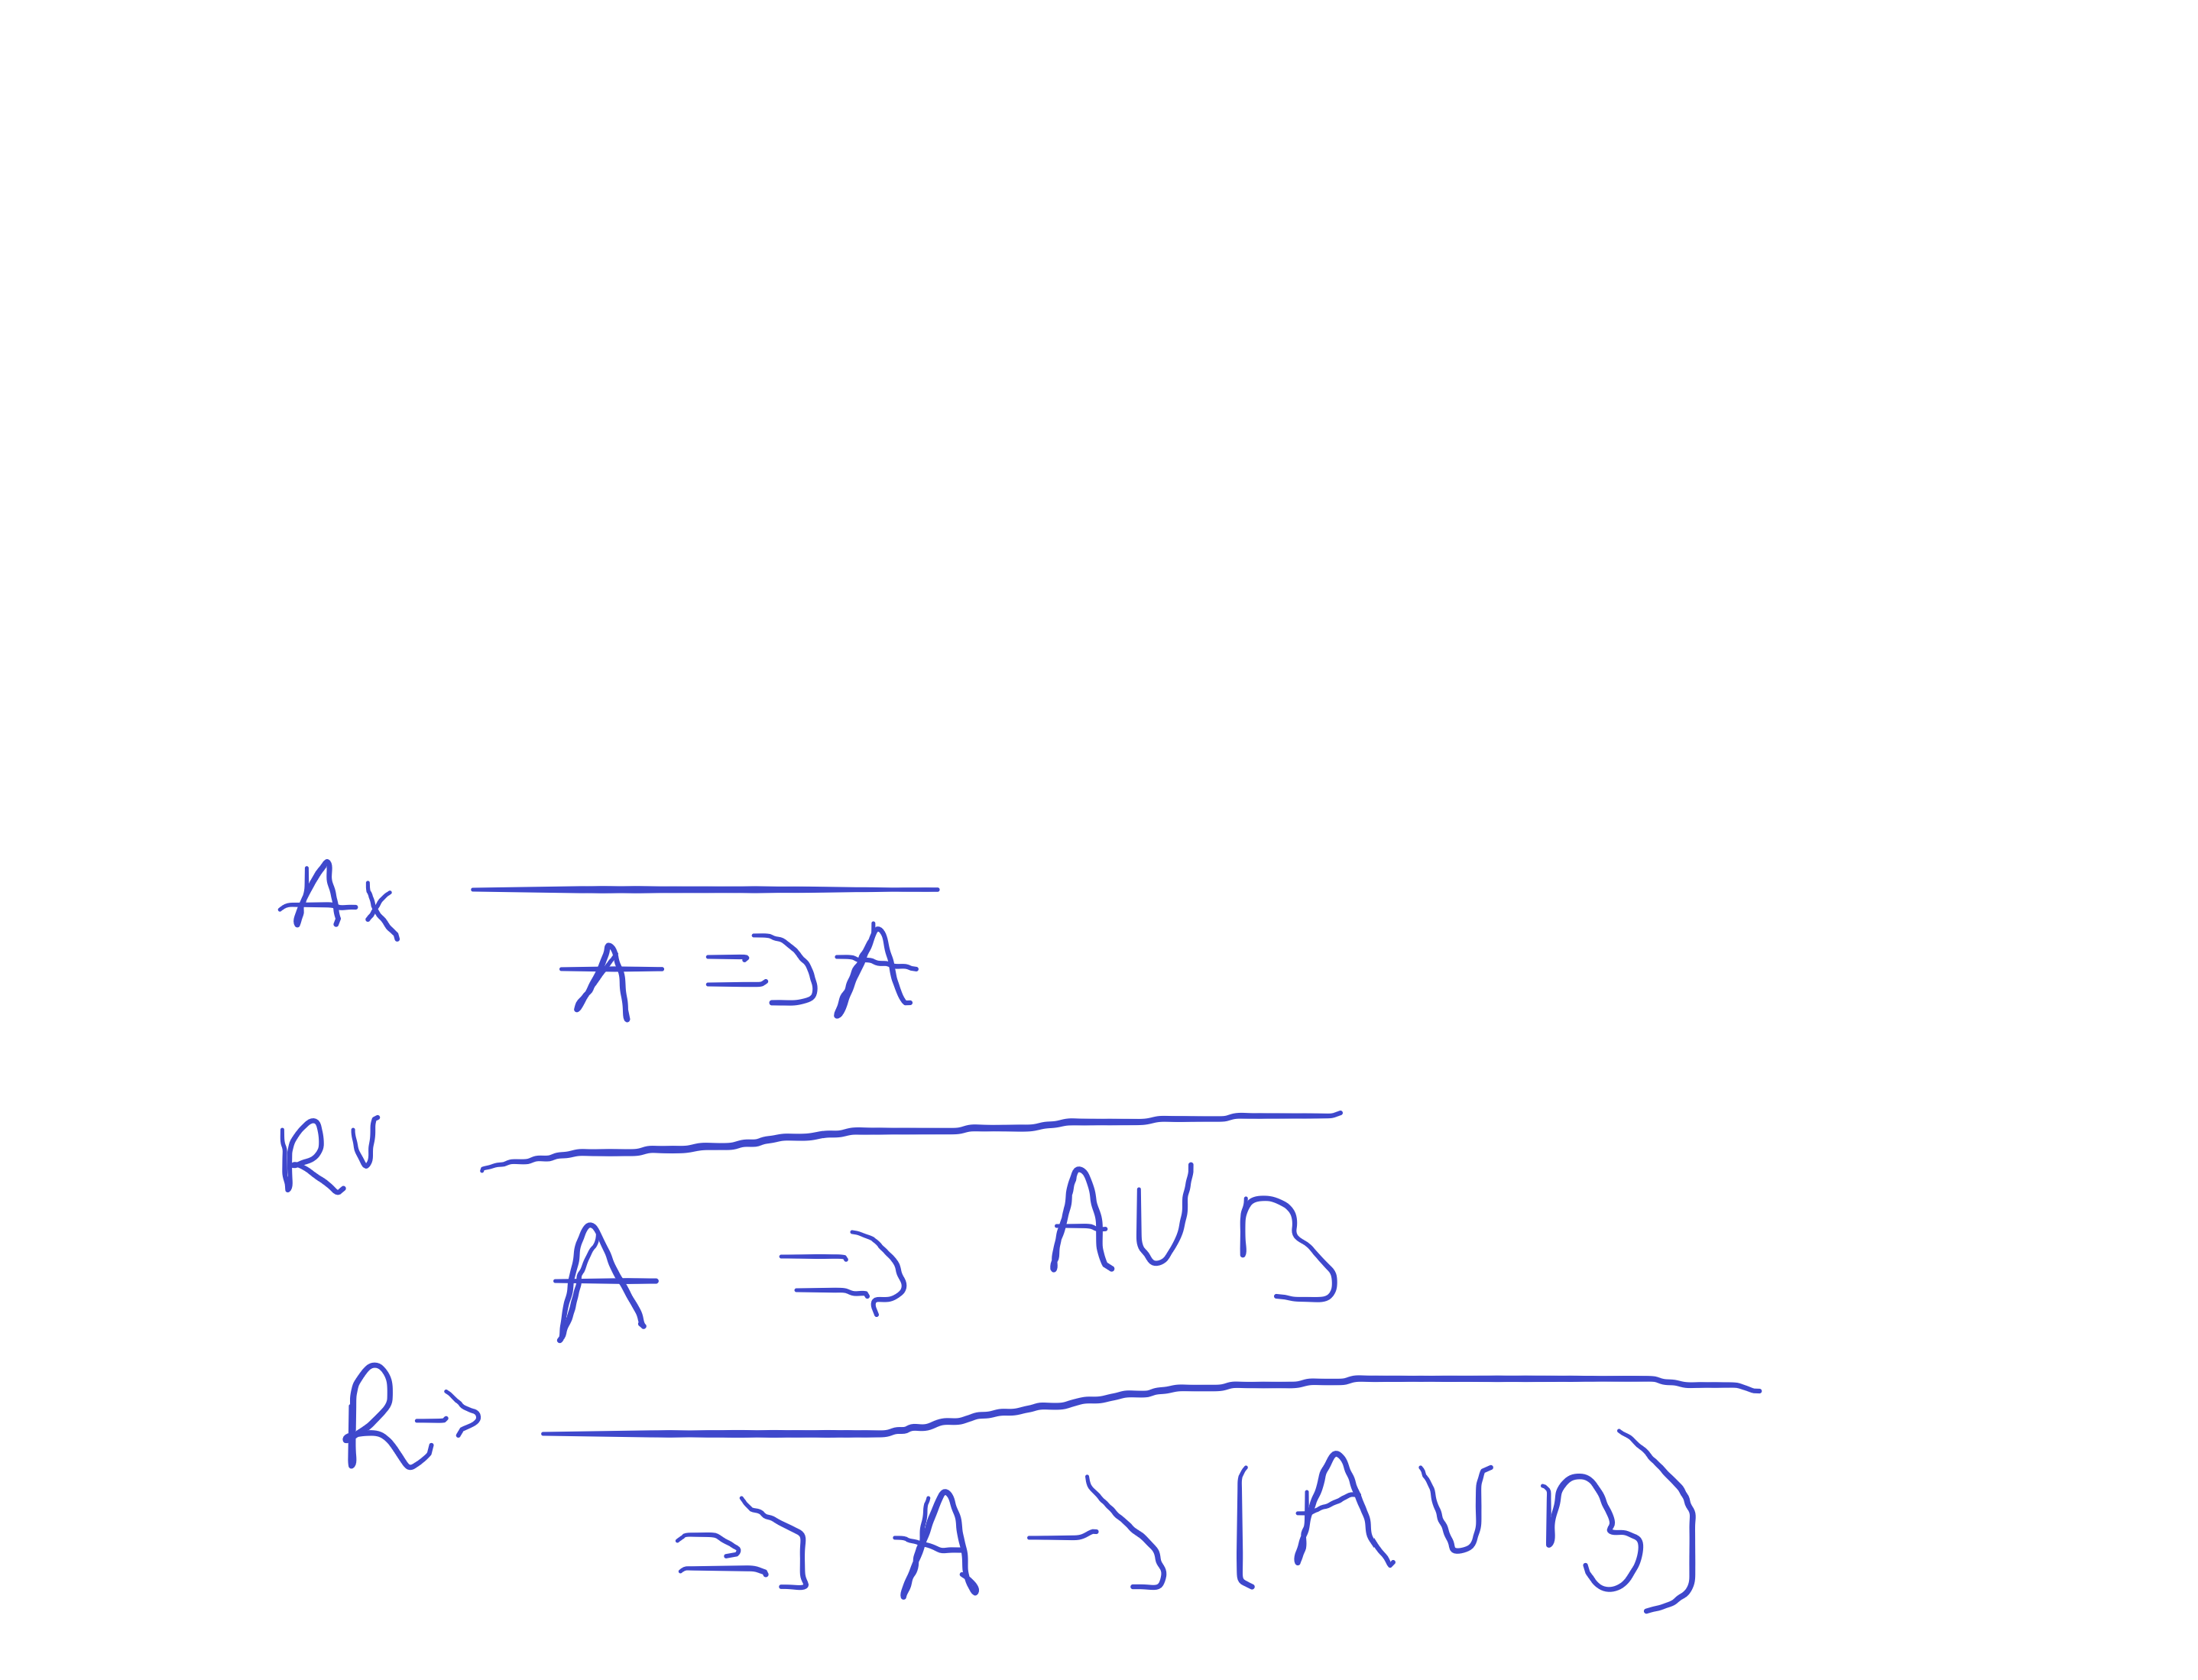 Ax
A ⇒ A
R∨
A ⇒ A ∨ B
R→
⇒ A → (A ∨ B)